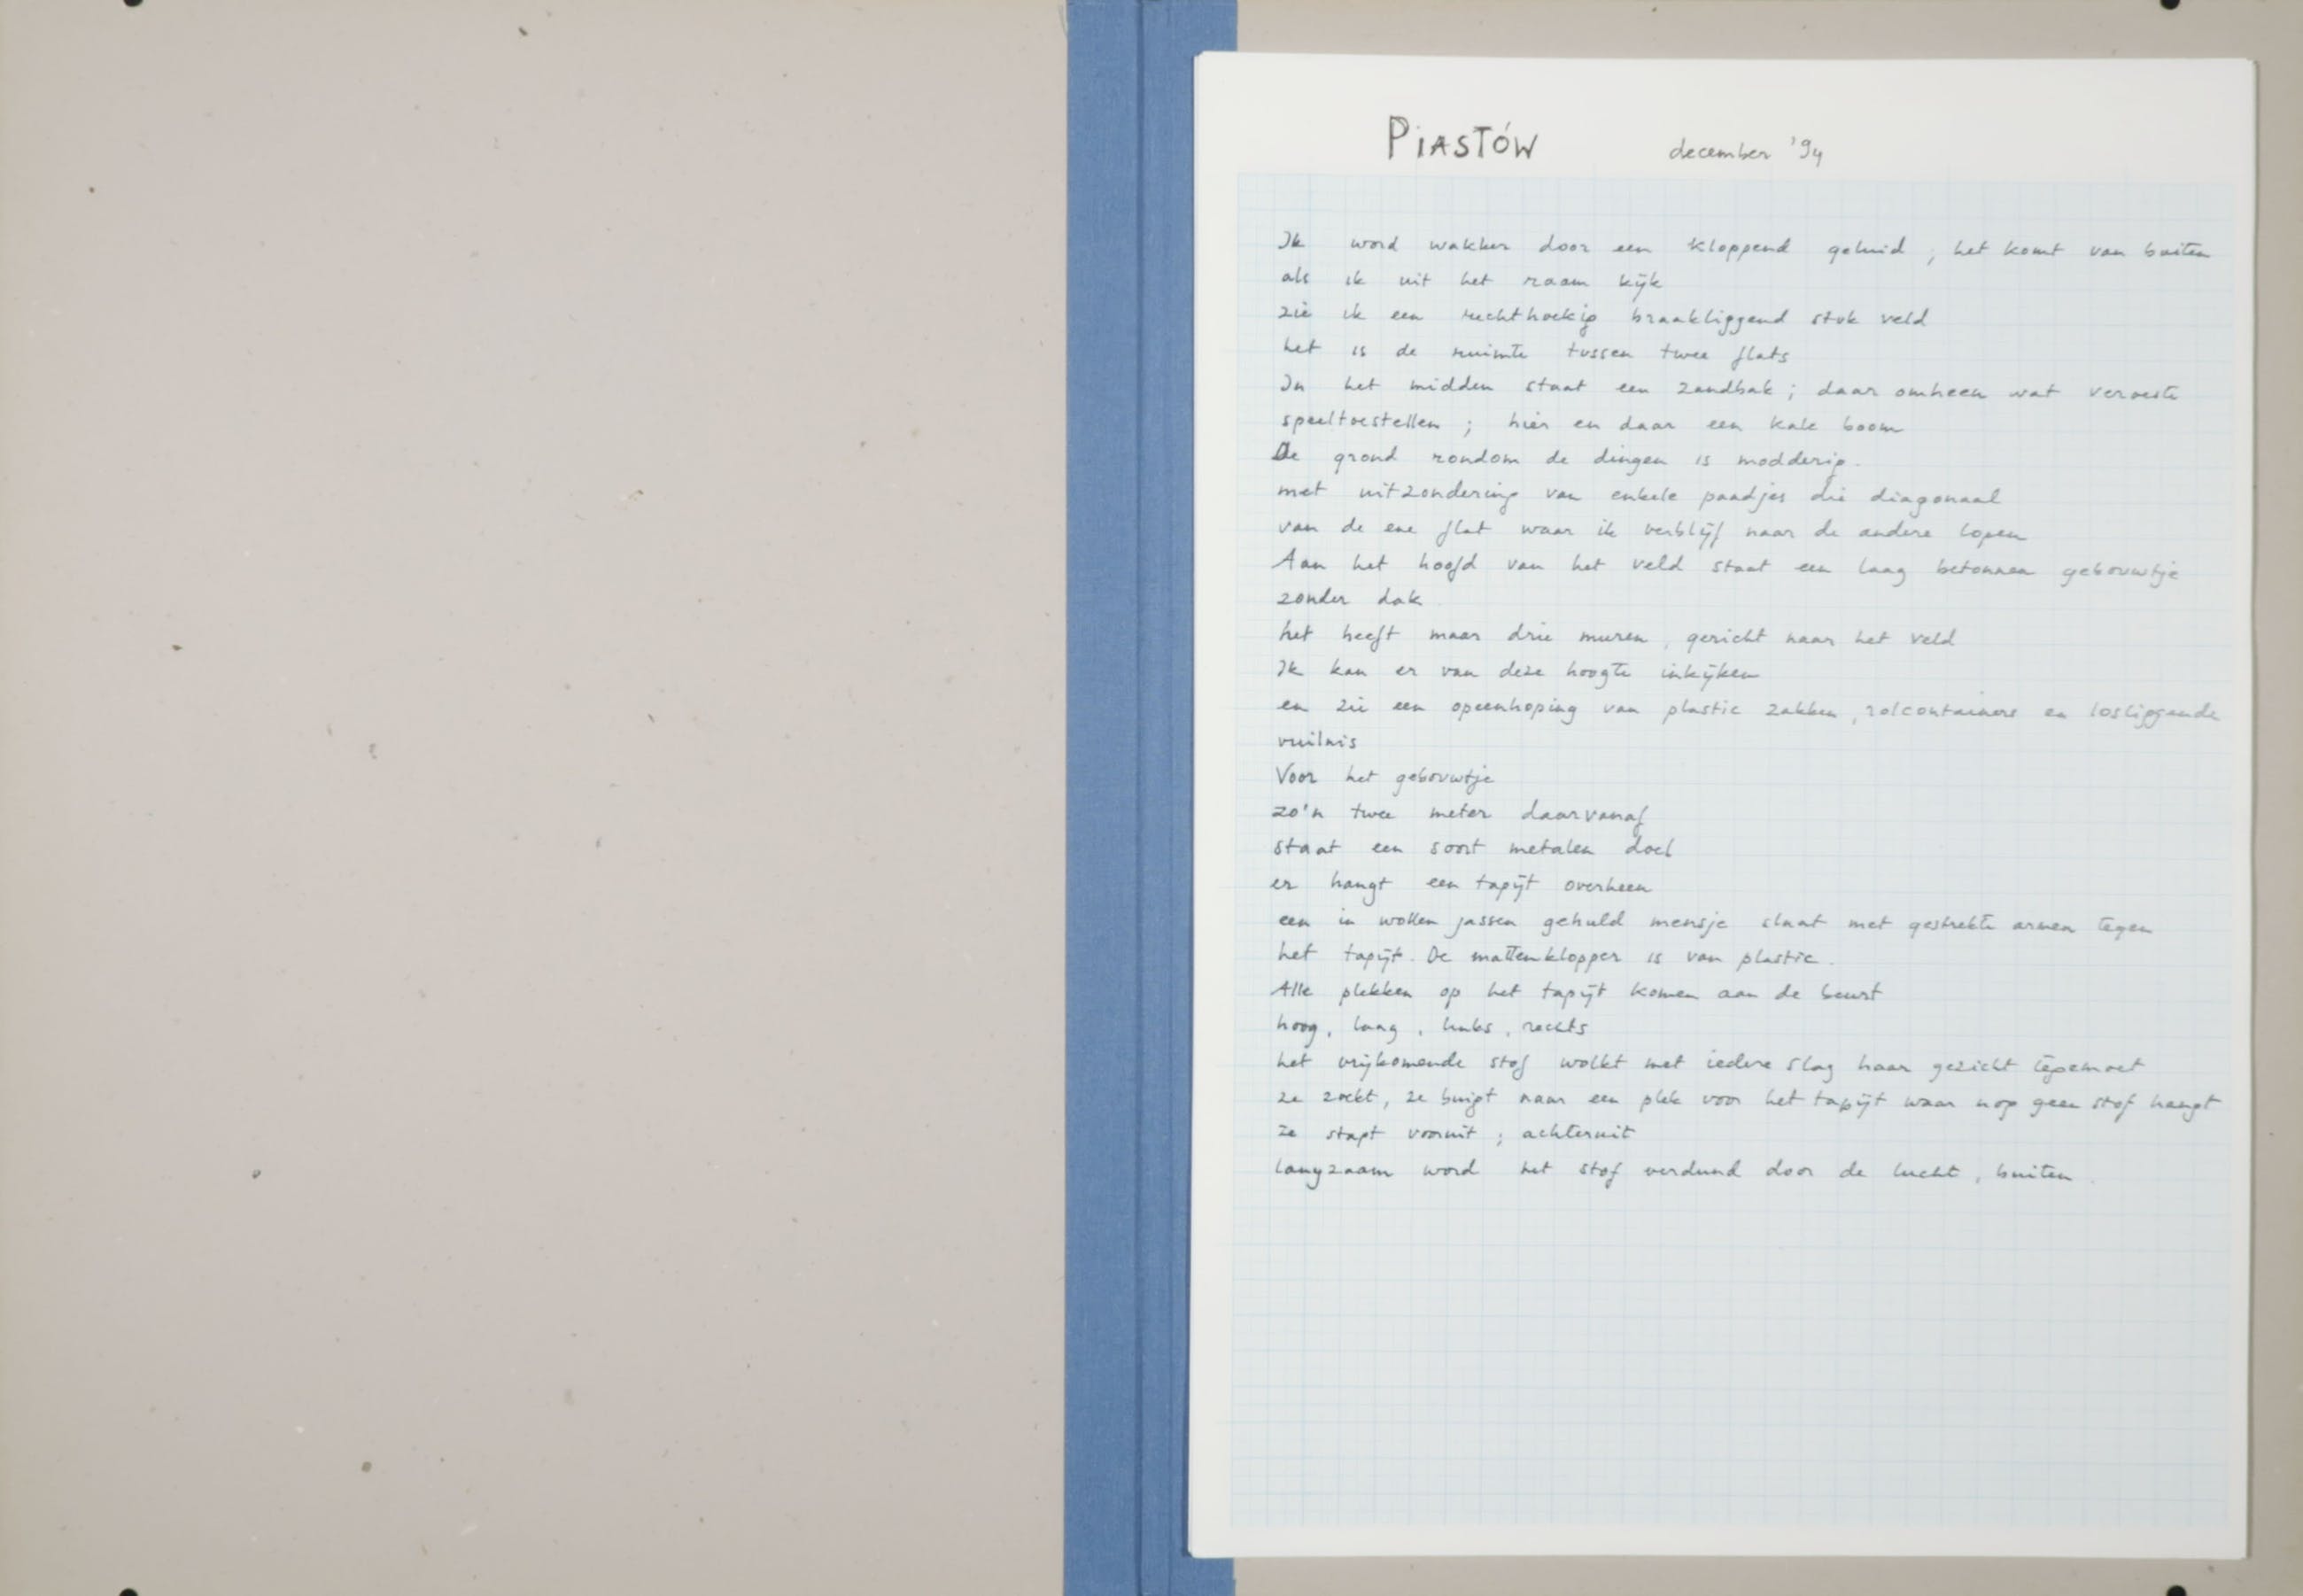 PIASTÓW december '94
Ik word wakker door een kloppend geluid ; het komt van buiten
als ik uit het raam kijk
zie ik een rechthoekig braakliggend stuk veld
het is de ruimte tussen twee flats
In het midden staat een zandbak ; daar omheen wat veroeste
speeltoestellen ; hier en daar een kale boom
De grond rondom de dingen is modderig.
met uitzondering van enkele paadjes die diagonaal
van de ene flat waar ik verblijf naar de andere lopen
Aan het hoofd van het veld staat een laag betonnen gebouwtje
zonder dak
het heeft maar drie muren, gericht naar het veld
Ik kan er van deze hoogte inkijken
en zie een opeenhoping van plastic zakken, rolcontainers en losliggende
vuilnis
Voor het gebouwtje
zo'n twee meter daarvanaf
staat een soort metalen doel
er hangt een tapijt overheen
een in wollen jassen gehuld mensje slaat met gestrekte armen tegen
het tapijt. De mattenklopper is van plastic.
Alle plekken op het tapijt komen aan de beurt
hoog, laag, links, rechts
het vrijkomende stof wolkt met iedere slag haar gezicht tegemoet
ze zoekt, ze buigt naar een plek voor het tapijt waar nog geen stof hangt
ze stapt vooruit ; achteruit
langzaam word het stof verdund door de lucht, buiten.